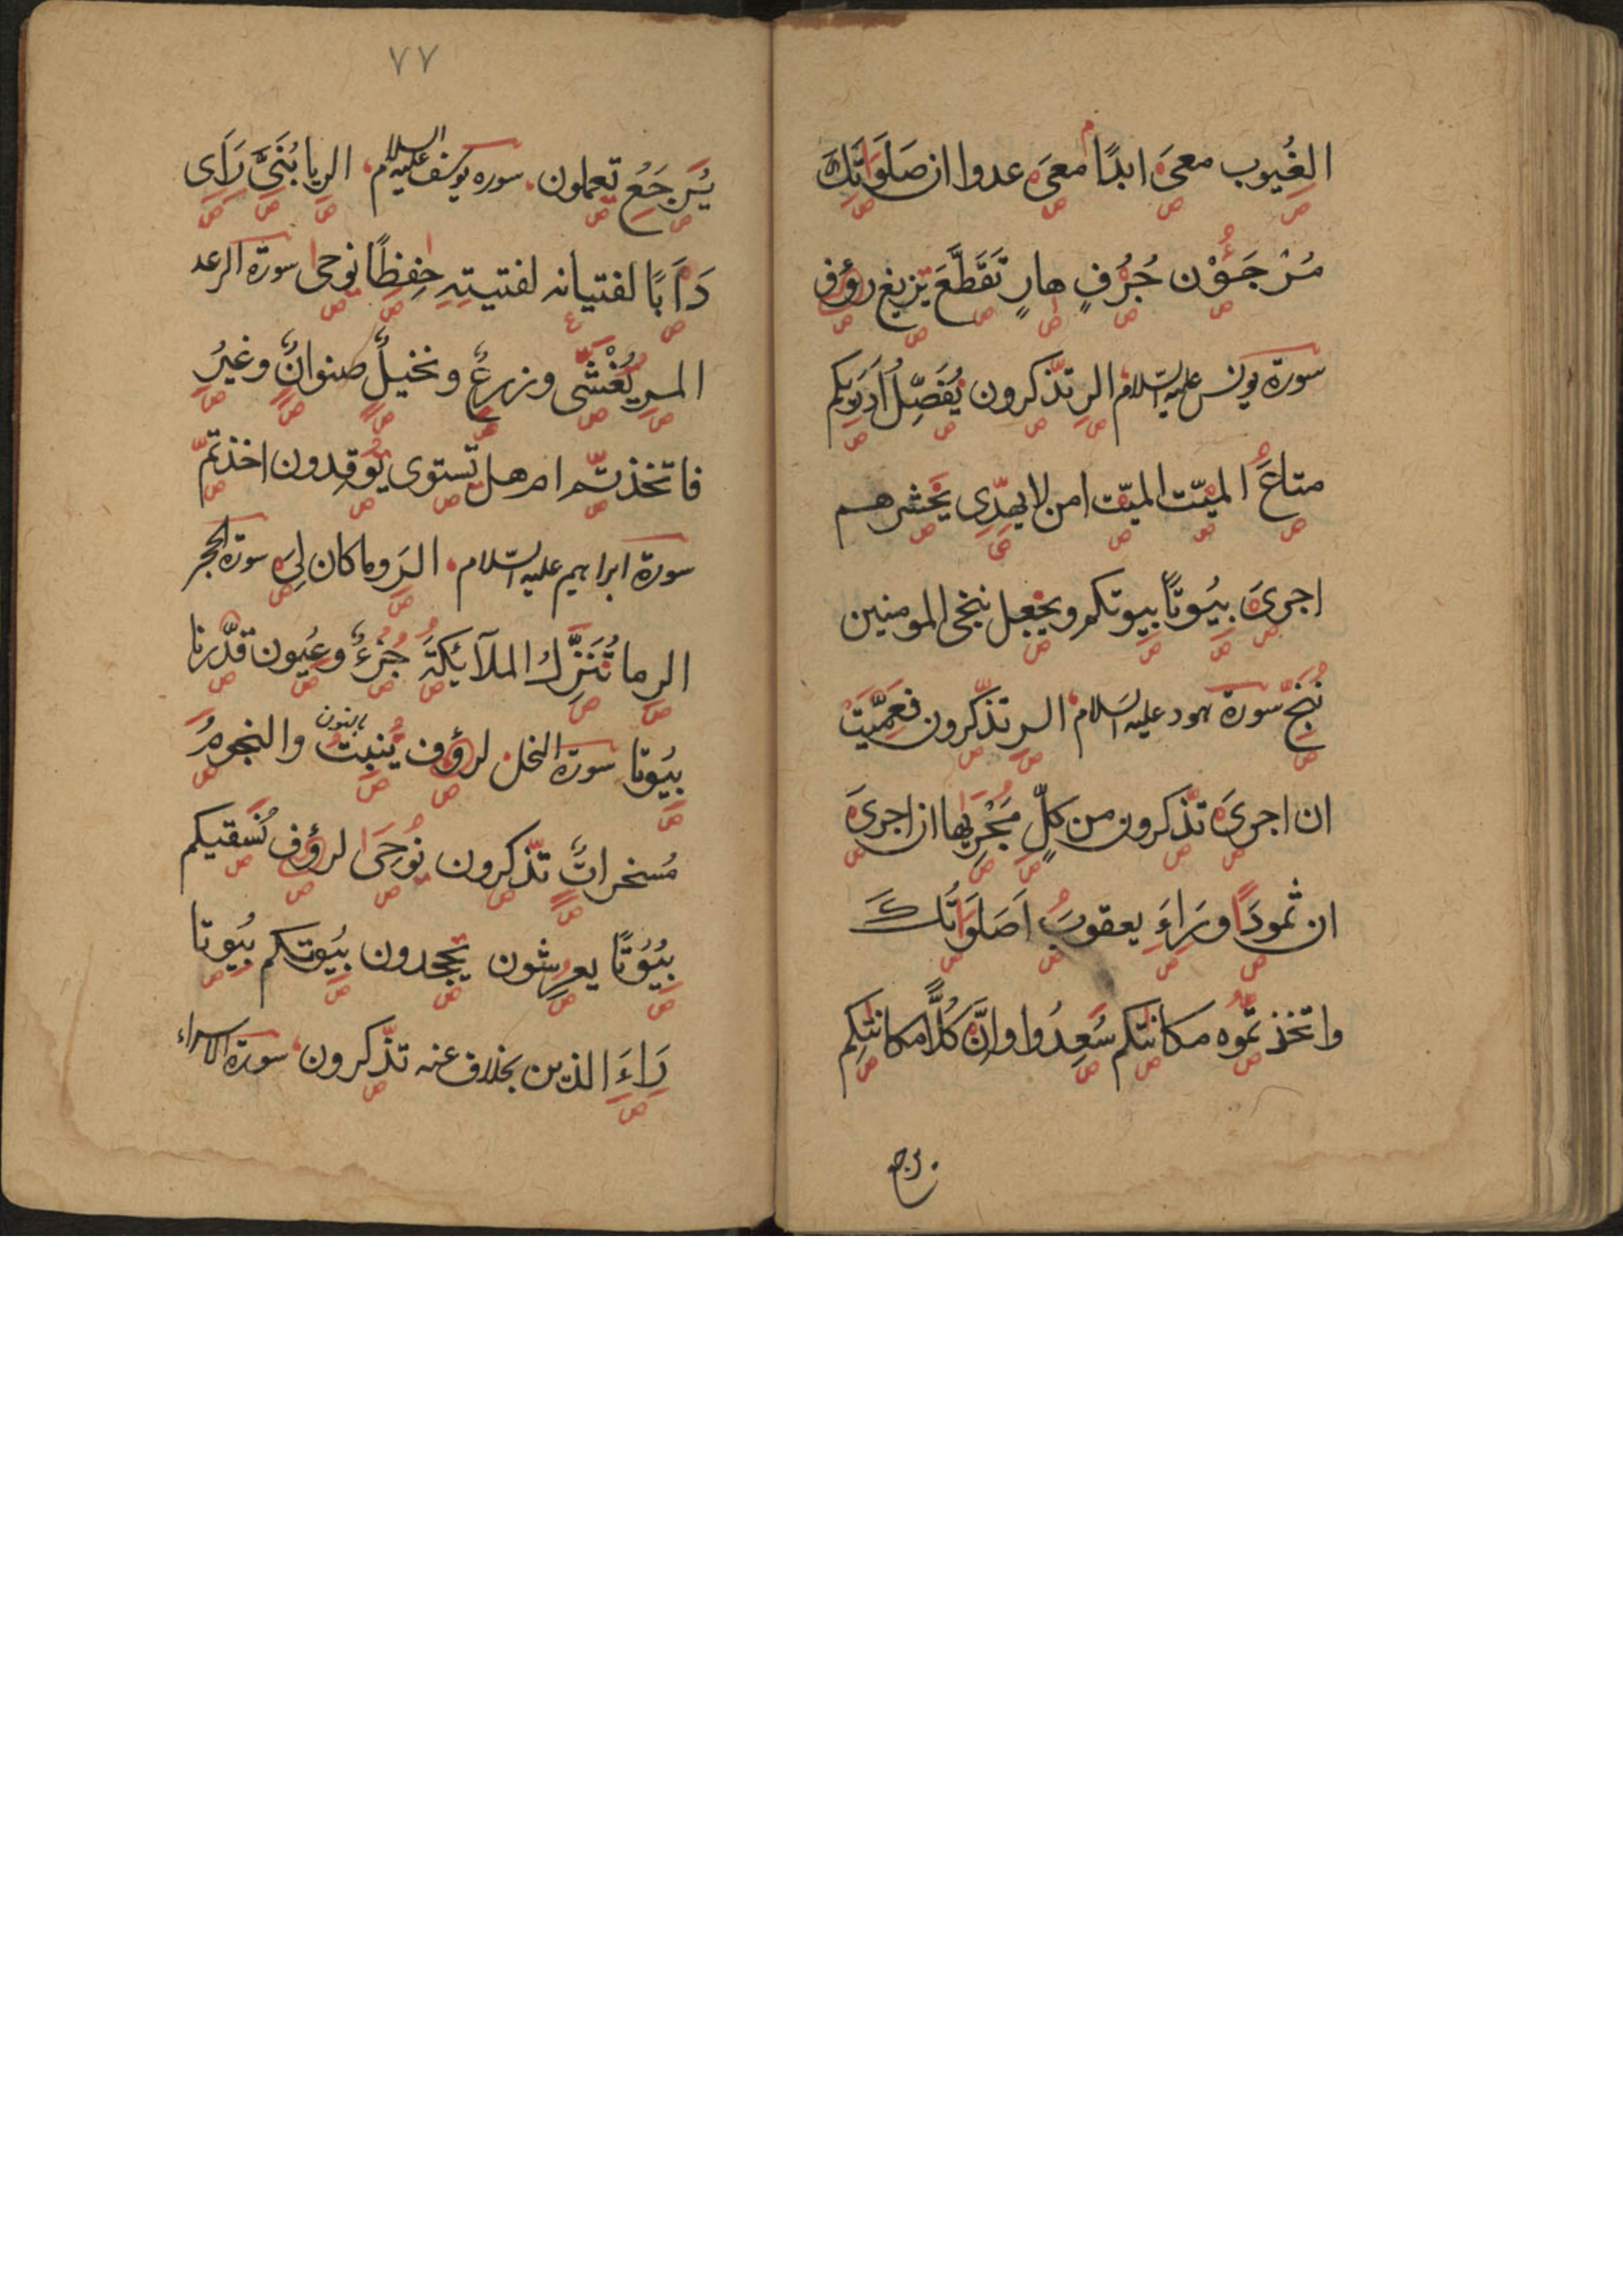 الغُيوب معىَ ابدًا معىَ عدوا ان صَلَوَاتَكَ
مُرْجَؤُن جُرُفٍ هارٍ تَقَطَّعَ يزيغ رؤف
سورة يونس عليه السلام الر تذّكرون يُفَصِّلُ اَدرَيكم
متاعَ الميّت الميّت امن لا يهدّى يحشرهم
اجرىَ بيُوتًا بيوتكم ويجعل ننجى المومنين
نُنَجّ سورة هود عليه السلام الر تذّكرون فعمّيت
ان اجرىَ تذّكرون من كلٍّ مَجْريها ان اجرىَ
ان ثمودًا وَرَاءَ يعقوبَ اَصَلَوَاتُكَ
واتخذتمُوه مكانتكم سُعِدُوا وانَّ كُلًّا مكانتكم
يرجع
٧٧
يُرجَعُ تعملون سوره يوسف عليه السلام الر يا بُنَىَّ رَاَى
دَاَبًا لفتيانه لفتيته حٰفِظًا نوحى سورة الرعد
المر يُغْشّى وزرعٌ ونخيلٌ صنوانٌ وغيرُ
فاتخذتم ام هل تستوى يُوقدون اخذتم
سورة ابراهيم عليه السلام الر وما كان لِىَ سورة الحجر
الر ما نُنَزِّلُ الملآئكةَ جُزءٌ وعُيون قدّرنا
بيُوتا سورة النحل لرؤف يُنبتُ بالنون والنجومُ
مُسخراتٌ تذّكرون نُوحَى لرؤف نُسقيكم
بيُوُتًا يعرشون يجحدون بيُوتكم بيُوتا
رَاءَ الذين بخلاف عنه تذّكرون سورة الاسراء